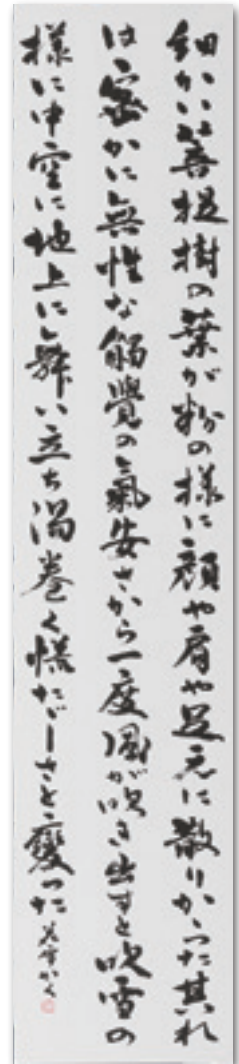 細かい菩提樹の葉が粉の様に顔や肩や足元に散りかかった其れ
は密かに無性な觸覺の氣安さから一度風が吹き出すと吹雪の
様に中空に地上に舞い立ち渦巻く慌だしさと變った